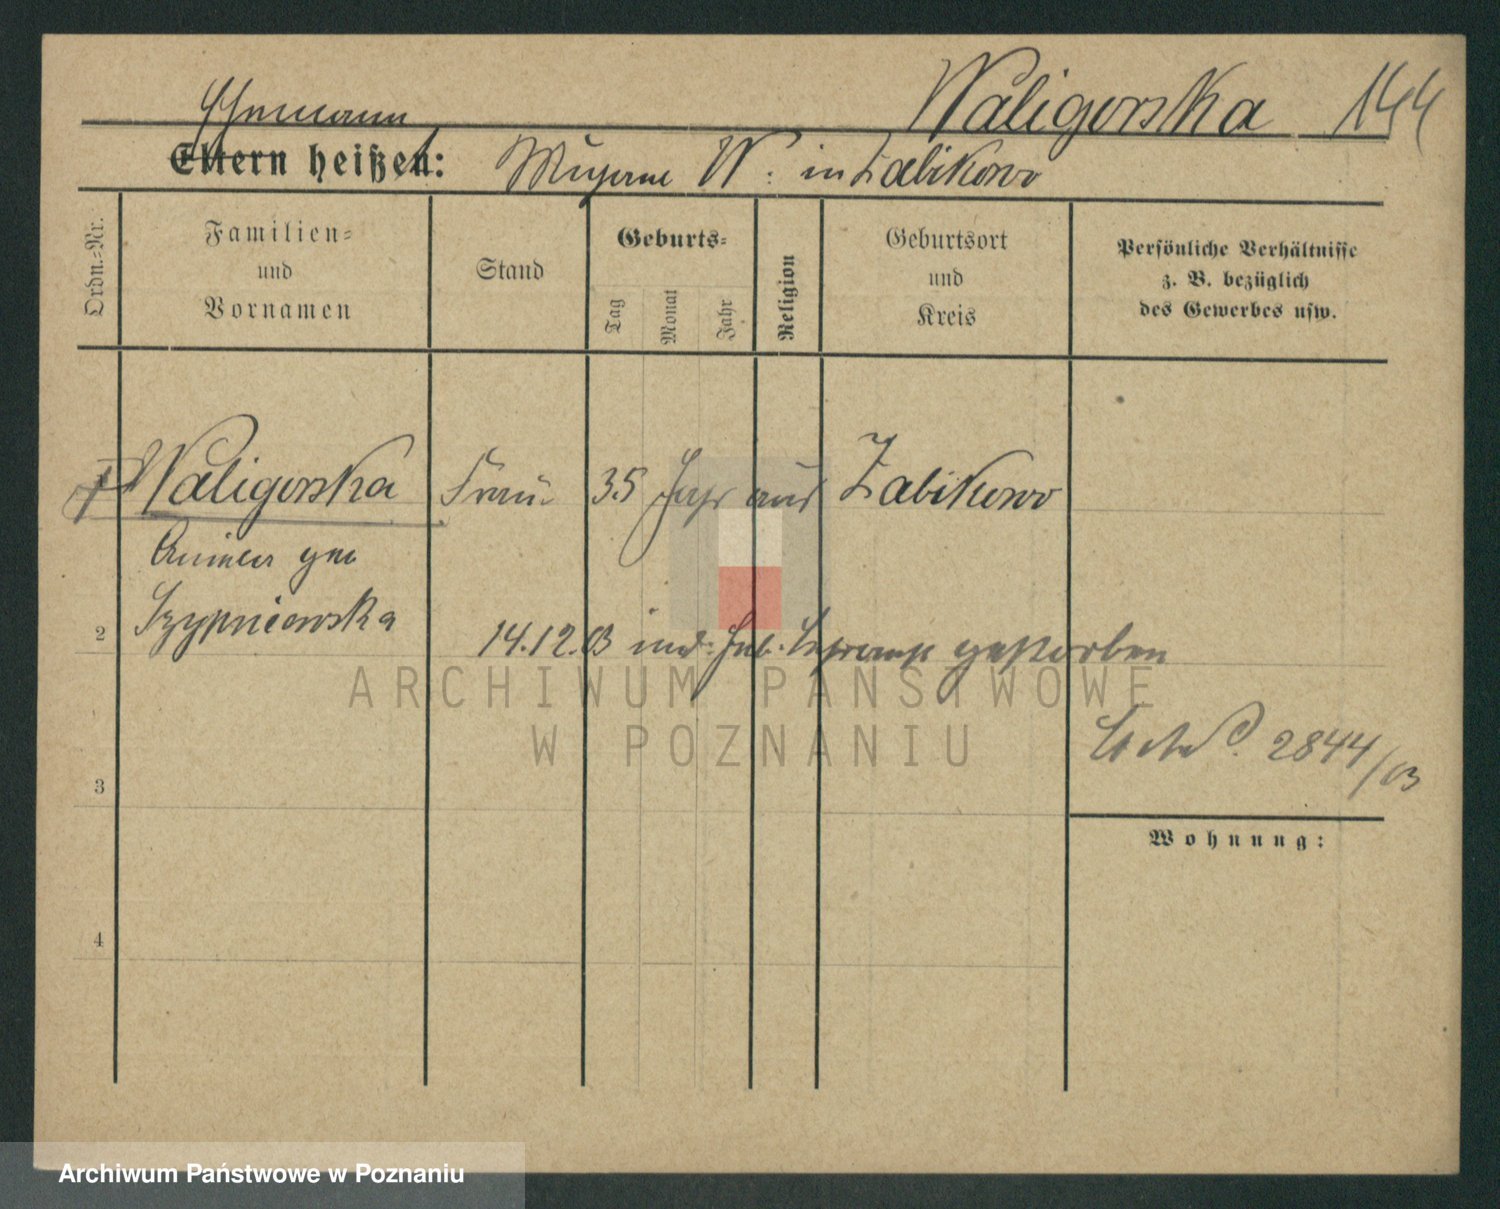 Ehemann
Waligorska 144
Eltern heißen: W. in Zabikowo
Ordn.-Nr.
Familien-
und
Vornamen
Stand
Geburts-
Tag
Monat
Jahr
Religion
Geburtsort
und
Kreis
Persönliche Verhältnisse
z. B. bezüglich
des Gewerbes usw.
† Waligorska Frau 35 Jahr aus Zabikowo
geb
Szypniewska
2
14.12.03 gestorben
ARCHIWUM PAŃSTWOWE
W POZNANIU
2844/03
3
Wohnung:
4
Archiwum Państwowe w Poznaniu